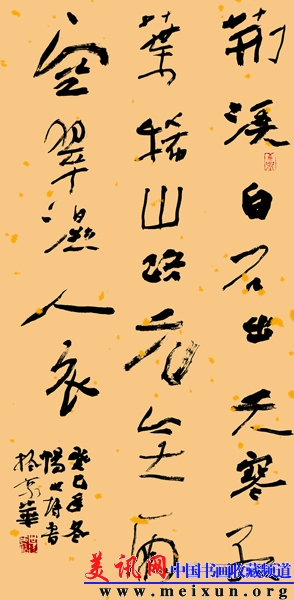 荆溪白石出天寒红
葉稀山路元无雨
空翠濕人衣
癸巳年冬
楊書
於京華
美讯网 中国书画收藏频道
www.meixun.org